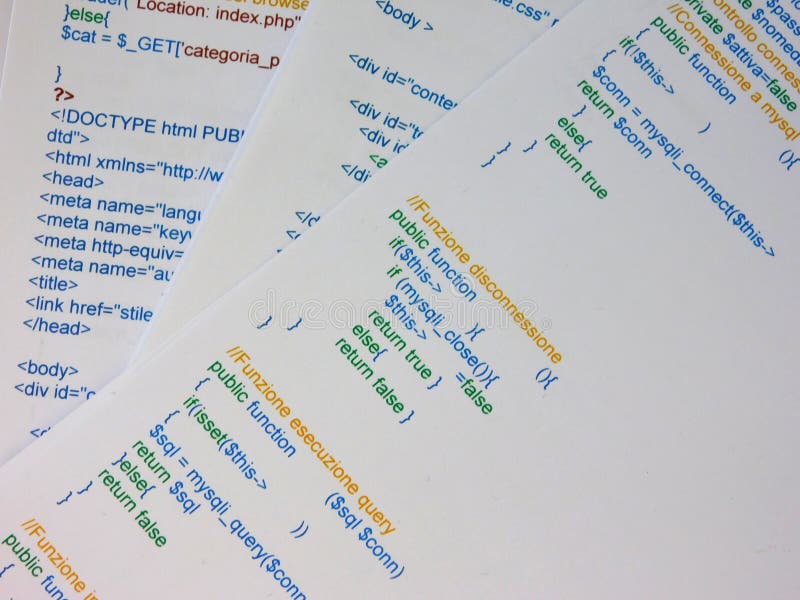 Location: index.php"
}else{
$cat = $_GET['categoria_p
}
?>
<!DOCTYPE html PUB
dtd">
<html xmlns="http://w
<head>
<meta name="lang
<meta name="keyw
<meta http-equiv=
<meta name="au
<title>
<link href="stile
</head>
<body>
<div id="c
<d
.css" /
<body >
<div id="conte
<div id="t
<div id
<a
</di
</d
//Connessione a mysql
private $attiva=false
public function (){
if(!$this-> )
{
$conn = mysqli_connect($this->
return $conn
}
else{
return true
}
}
//Funzione disconnessione
public function (){
if($this-> ){
if (mysqli_close()){
$this-> =false
return true }
else{
return false }
}
}
//Funzione esecuzione query
public function ($sql $conn)
{
if(isset($this-> ))
{
$sql = mysqli_query($conn
return $sql
}else{
return false
}
}
//Funzione in
public function
{
dreamstime